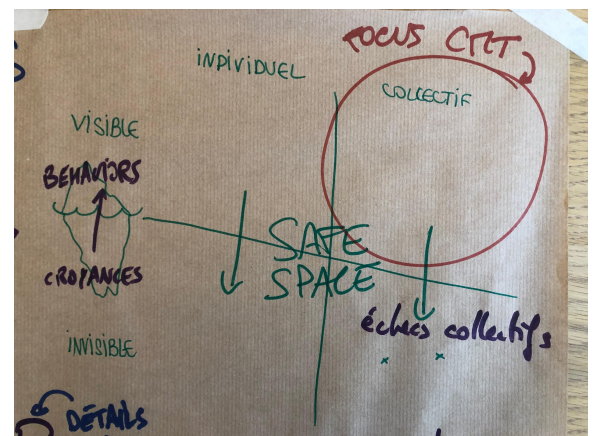 FOCUS CMT
INDIVIDUEL
COLLECTIF
VISIBLE
BEHAVIORS
SAFE
SPACE
CROYANCES
échecs collectifs
INVISIBLE
DÉTAILS